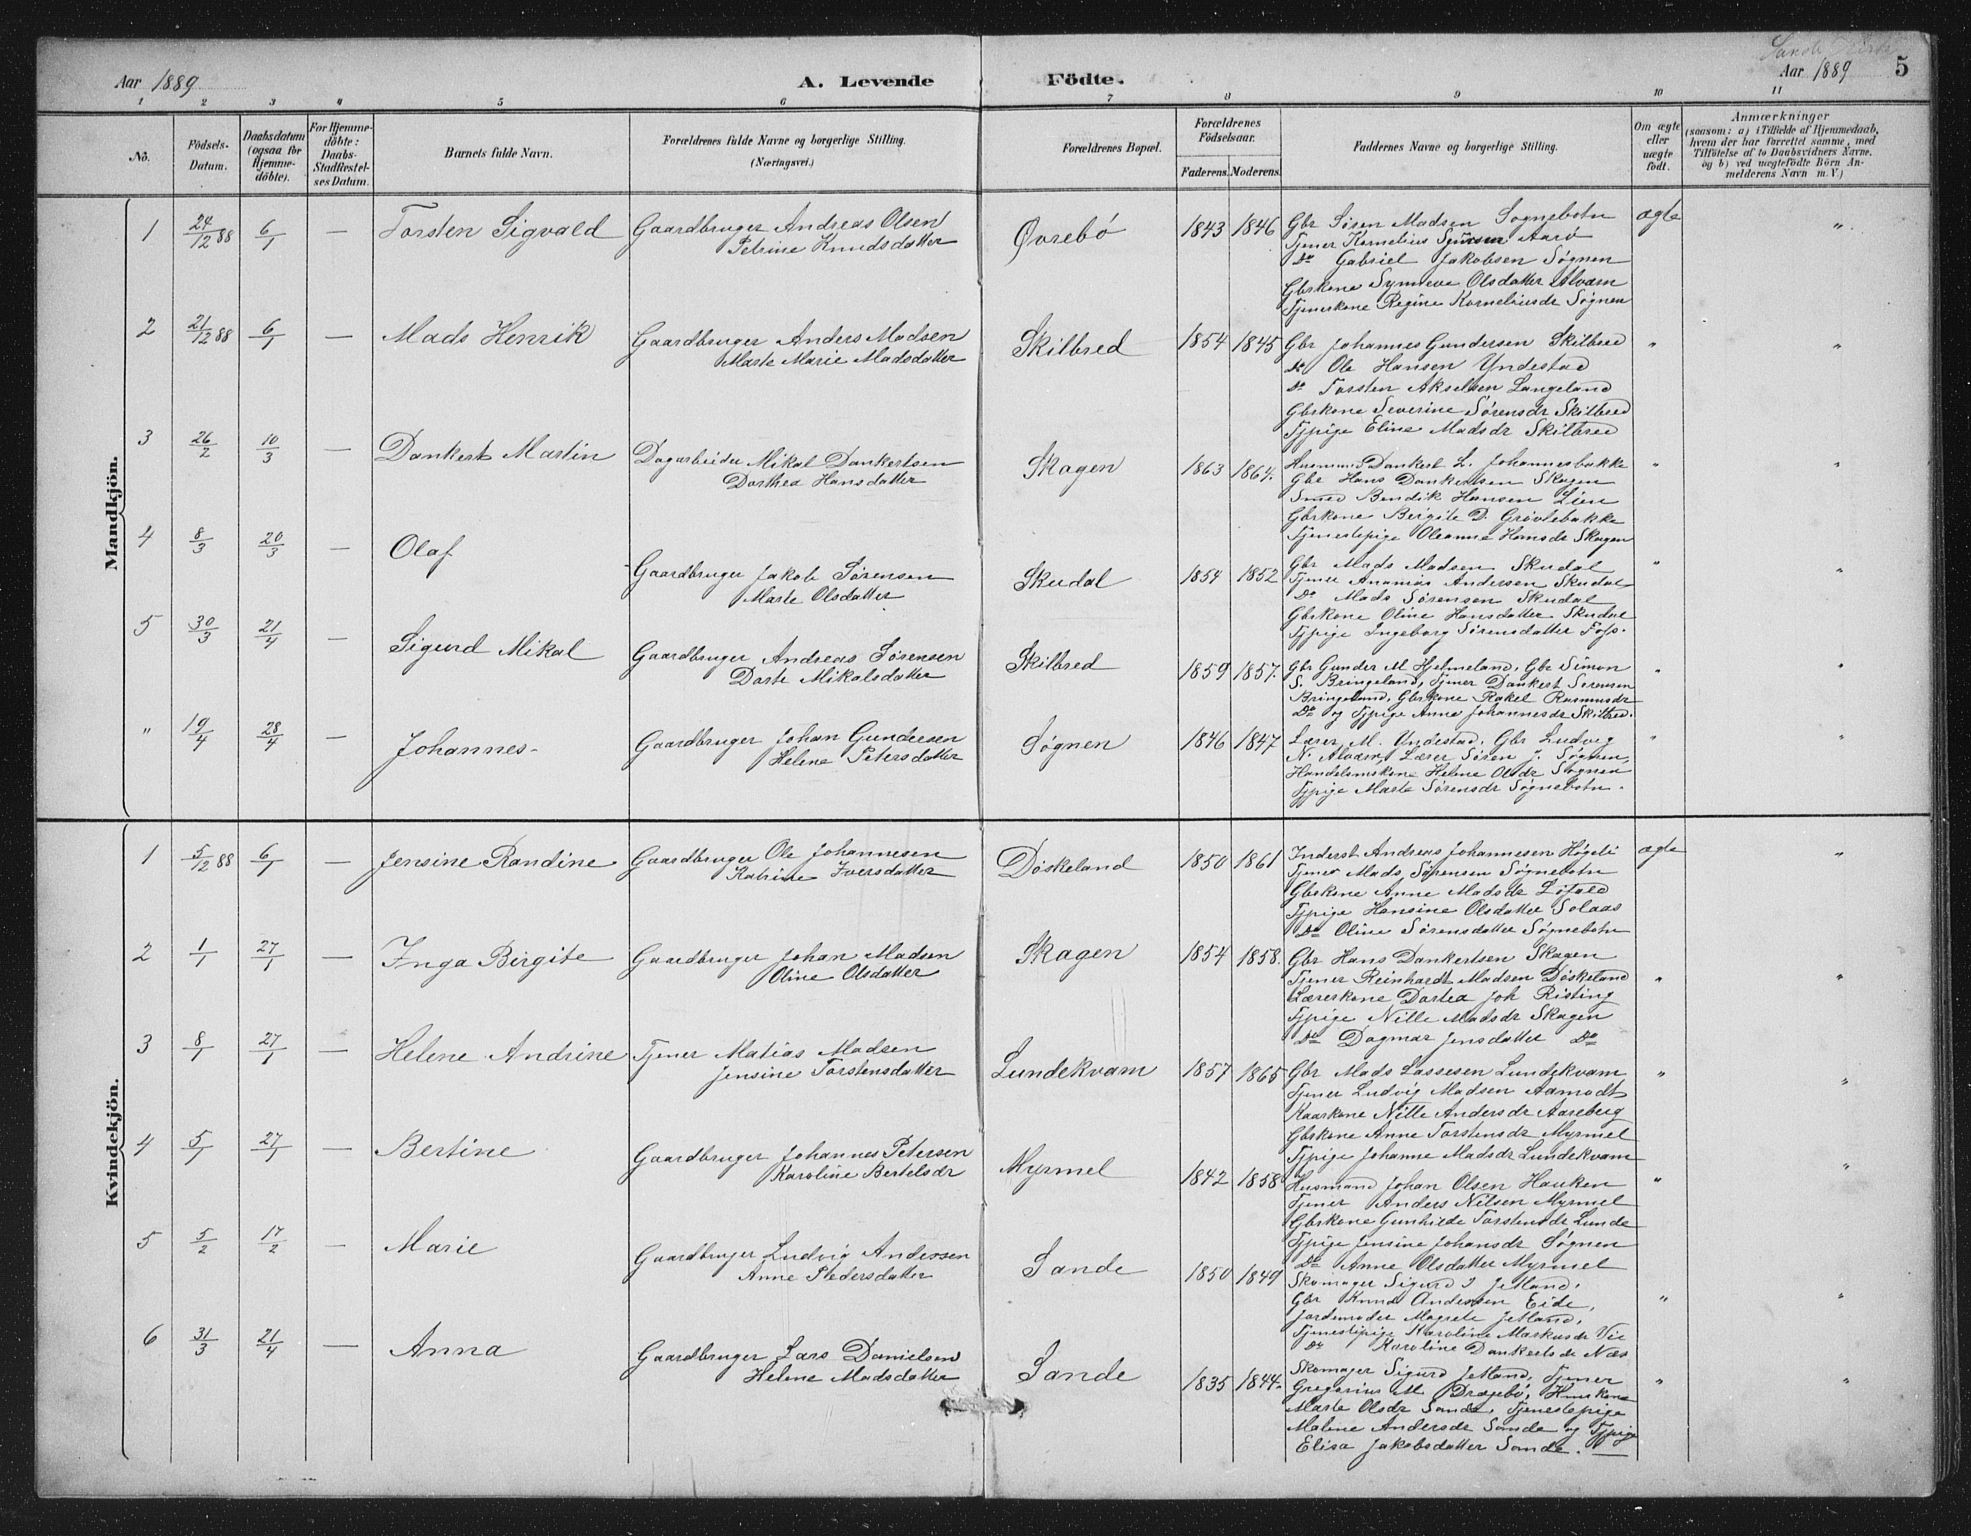 Aar 1889 A. Levende Födte. Sande Aar 1889 5
1 2 3 4 5 6 7 8 9 10 11
No. Födsels-Datum. Daabsdatum (ogsaa for Hjemmedöbte). For Hjemmedöbte: Daabs-Stadfæstelses Datum. Barnets fulde Navn. Forældrenes fulde Navne og borgerlige Stilling. (Næringsvei.) Forældrenes Bopæl. Forældrenes Födselsaar. Faderens. Moderens. Faddernes Navne og borgerlige Stilling. Om ægte eller uægte födt. Anmærkninger (saasom: a) i Tilfælde af Hjemmedaab, hvem der har forrettet samme, med Tilföielse af to Daabsvidners Navne, og b) ved uægtefödte Börn Anmelderens Navn m. V.)
Mandkjön.
1 24/12 88 6/1 — Torsten Sigvald Gaardbruger Andreas Olsen Øvrebø 1843 1846 Gbr Søren Madsen Sognebotn ægte "
Petrine Knudsdatter Tjener Kornelius Aarø
Do Gabriel Jakobsen Søgnen
Gbrkone Synneve Olsdatter Alværn
Tjenerkone Regine Korneliusdr Søgnen
2 21/12 88 6/1 — Mads Henrik Gaardbruger Anders Madsen Skilbred 1854 1845 Gbr Johannes Gundersen Skilbred " "
Marte Marie Madsdatter Do Ole Hansen Yndestad
Do Torsten Akselsen Langeland
Gbrkone Severine Sørensdr Skilbred
Tjpige Eline Madsdr Skilbred
3 26/2 10/3 — Dankert Martin Dagarbeider Mikal Dankertsen Skagen 1863 1864. Husmand Dankert L. Johannesbakke " "
Dorthea Hansdatter Gbr Hans Dankertsen Skagen
Smed Bendik Hansen Lien
Gbrkone Bergite D. Grøvlebakke
Tjenestepige Oleanne Hansdr Skagen
4 8/3 20/3 — Olaf Gaardbruger Jakob Sørensen Skudal 1854 1852 Gbr Mads Madsen Skudal " "
Marte Olsdatter Tjener Ananias Andersen Skudal
Do Mads Sørensen Skudal
Gbrkone Oline Hansdatter Skudal
Tjpige Ingeborg Sørensdatter Foss.
5 30/3 21/4 — Sigurd Mikal Gaardbruger Andreas Sørensen Skilbred 1859 1857. Gbr Gunder M Hjelmeland, Gbr Simon " "
Dorte Mikalsdatter S. Bringeland, Tjener Dankert Sørensen
Bringeland, Gbrkone Rakel Rasmusdr
Do og Tjpige Anne Johannesdr Skilbred.
" 19/4 28/4 — Johannes. Gaardbruger Johan Gundersen Søgnen 1846 1847 Lærer M. Yndestad, Gbr Ludvig " "
Helene Petersdatter N. Alværn, Lærer Søren J. Søgnen,
Handelsmskone Helene Olsdr Søgnen
Tjpige Marte Sørensdr Søgnebotn.
Kvindekjön.
1 5/12 88 6/1 — Jensine Randine Gaardbruger Ole Johannesen Døskeland 1850 1861 Inderst Andreas Johannesen Høgeli ægte "
Katrine Iversdatter Tjener Mads Sørensen Søgnebotn
Gbrkone Anne Madsdr Lofald
Tjpige Hansine Olsdatter Solaas
Do Oline Sørensdatter Søgnebotn
2 1/1 27/1 — Inga Birgite Gaardbruger Johan Madsen Skagen 1854 1858. Gbr Hans Dankertsen Skagen " "
Oline Olsdatter Tjener Reinhardt Madsen Døskeland
Lærerkone Dortea Joh Risting
Tjpige Nille Madsdr Skagen
Do Dagmar Jensdatter Do
3 8/1 27/1 — Helene Andrine Tjener Matias Madsen Lundekvam 1857 1865 Gbr Mads Lassesen Lundekvam " "
Jensine Torstensdatter Tjener Ludvig Madsen Aamodt
Kaarkone Nille Andersdr Aareberg
Gbrkone Anne Torstensdr Myrmel
Tjpige Johanne Madsdr Lundekvam
4 5/1 27/1 — Bertine Gaardbruger Johannes Petersen Myrmel 1842 1858 Husmand Johan Olsen Hauken " "
Karoline Bertelsdr Tjener Anders Nilsen Myrmel
Gbrkone Gunhilde Torstensdr Lunde
Tjpige Jensine Johansdr Søgnen
Do Anne Olsdatter Myrmel
5 5/2 17/2 — Marie Gaardbruger Ludvig Andersen Sande 1850 1849 Skomager Sigurd I Jetland, " "
Anne Pedersdatter Gbr Knud Andersen Eide,
Jordemoder Magrete Jetland,
Tjenestepige Karoline Markusdr Vie
Do Karoline Dankertsdr Næs
6 31/3 21/4 — Anna Gaardbruger Lars Danielsen Sande 1835 1844. Skomager Sigurd Jetland, Tjener " "
Helene Madsdatter Gregorius M. Drægebø, Huuskone
Marte Olsdr Sande, Tjenestepige
Malene Andersdr Sande og Tjpige
Elisa Jakobsdatter Sande.